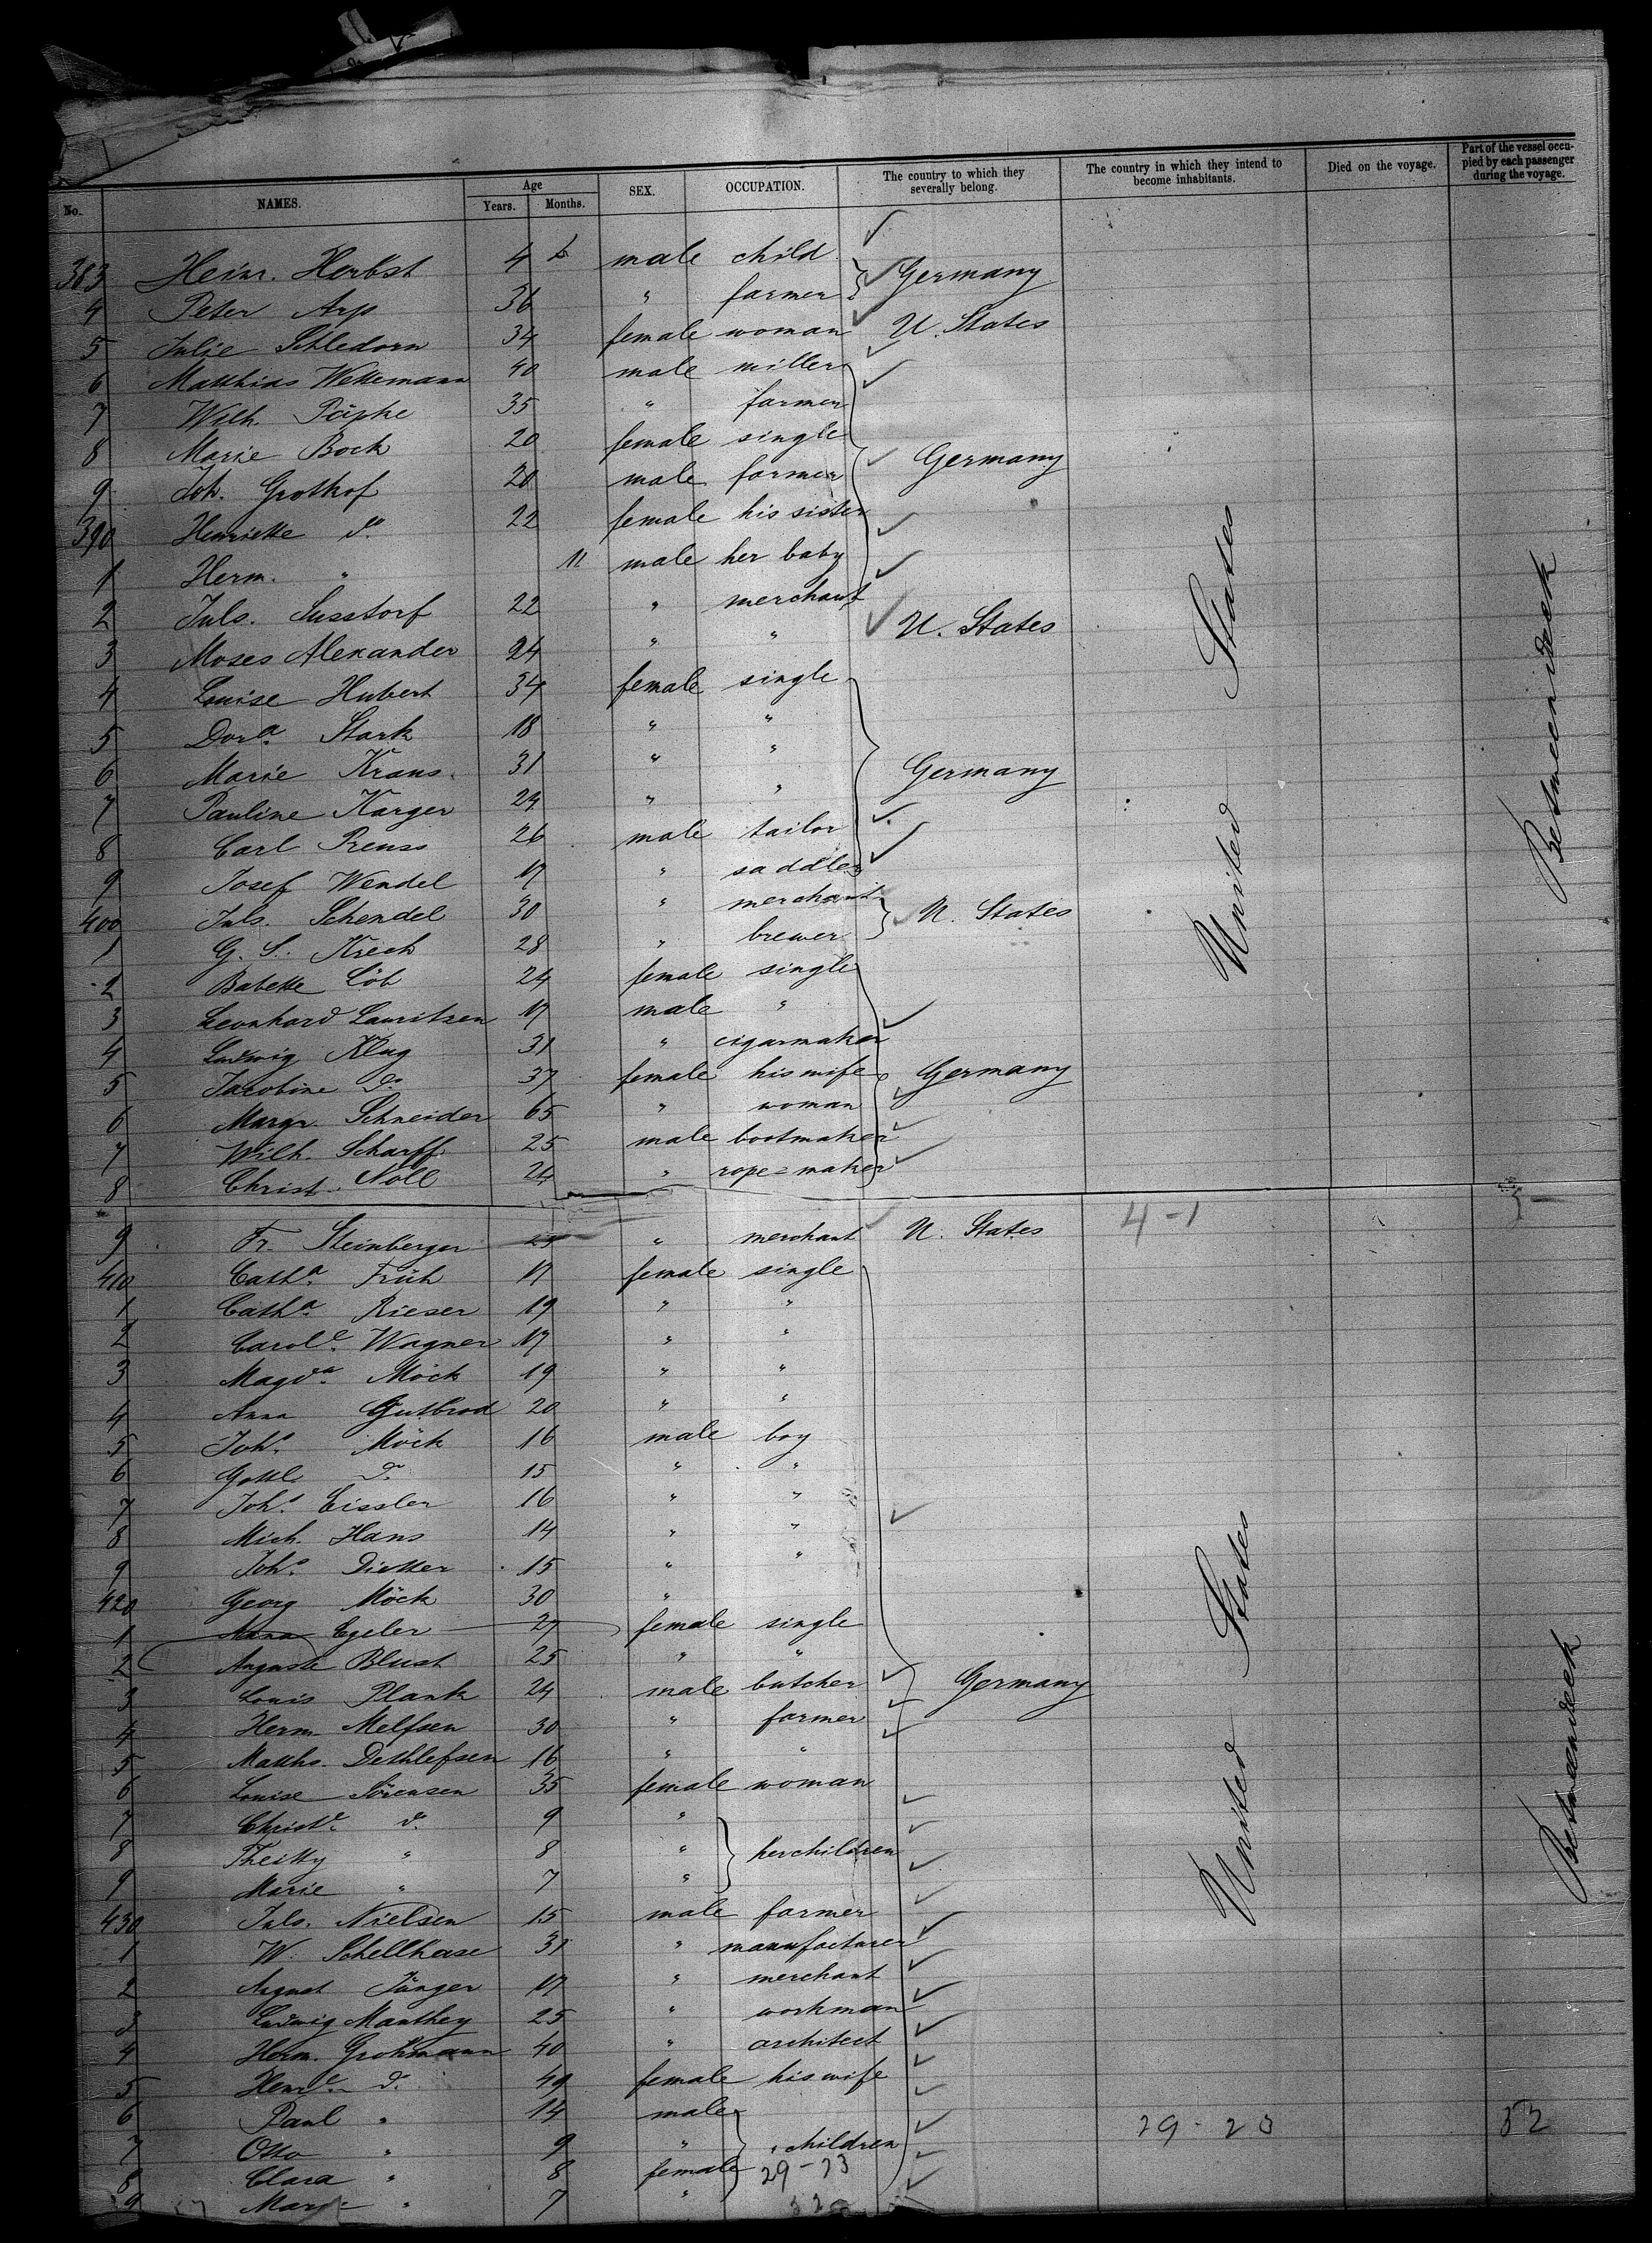 No. NAMES. Age Years. Months. SEX. OCCUPATION. The country to which they severally belong. The country in which they intend to become inhabitants. Died on the voyage. Part of the vessel occupied by each passenger during the voyage.
383 Heinr. Herbst 4 male child
4 Peter Arp 36 " farmer Germany
5 Julie Schledorn 34 female woman U. States
6 Matthias Wettemann 40 male miller
7 Wilh. Päpke 35 " farmer
8 Marie Bock 20 female single
9 Joh. Grothof 20 male farmer Germany
390 Henriette do 22 female his sister
1 Herm. " 11 male her baby
2 Juls. Susstorf 22 " merchant
3 Moses Alexander 24 " " U. States
4 Louise Hubert 34 female single
5 Dora Stark 18 " "
6 Marie Kraus 31 " "
7 Pauline Karger 24 " " Germany
8 Carl Preuss 26 male tailor
9 Josef Wendel 17 " saddler
400 Juls. Schendel 30 " merchant
1 G. S. Krech 28 " brewer U. States
2 Babette Löb 24 female single
3 Leonhard Lauritzen 17 male "
4 Ludwig Klug 31 " cigarmaker
5 Jacobine do 37 female his wife Germany
6 Margr. Schneider 65 " woman
7 Wilh. Scharff 25 male bootmaker
8 Christ. Noll 24 " rope=maker
9 Fr. Steinberger " merchant U. States 4-1
410 Catha. Früh 17 female single
1 Catha. Rieser 19 " "
2 Carole. Wagner 17 " "
3 Magda. Möck 19 " "
4 Anna Gutbrod 20 " "
5 Johs. Möck 16 male boy
6 Gottl. do 15 " "
7 Johs. Eissler 16 " "
8 Mich. Hans 14 " "
9 Johs. Dietter 15 " "
420 Georg Möck 30 "
1 Anna Egeler 27 female single
2 Auguste Blust 25 " "
3 Louis Plank 24 male butcher Germany
4 Herm. Melfsen 30 " farmer
5 Matths. Dethlefsen 16 " "
6 Louise Sörensen 35 female woman
7 Christe. do 9 "
8 " 8 " her children
9 Marie " 7 "
430 Juls. Nielsen 15 male farmer
1 W. Schellhase 31 " manufacturer
2 August Jünger 17 " merchant
3 Ludwig Manthey 25 " workman
4 Herm. Grohmann 40 " architect
5 Henre. do 49 female his wife
6 Paul " 14 male
7 Otto " 9 " children
8 Clara " 8 female 29-23
9 " 7 "
United States
United States
Betweendeck
Betweendeck
29-23
52